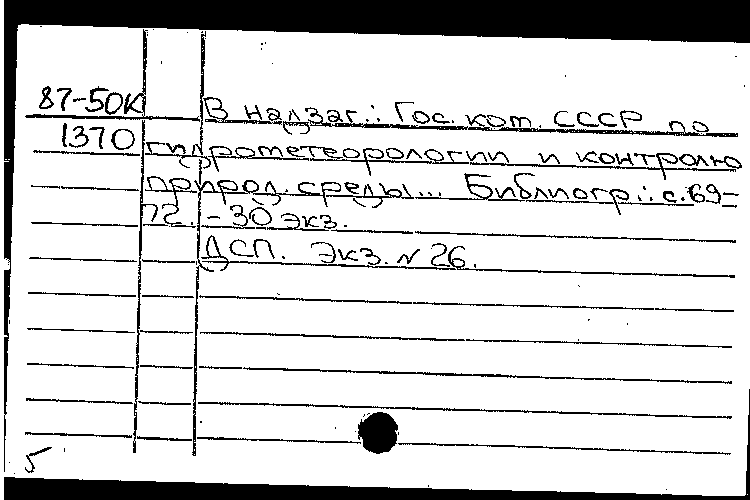 87-50К В надзаг.: Гос. ком. СССР по
1370 гидрометеорологии и контролю
природ. среды... Библиогр.: с. 69-
72. - 30 экз.
ДСП. Экз. № 26.
5